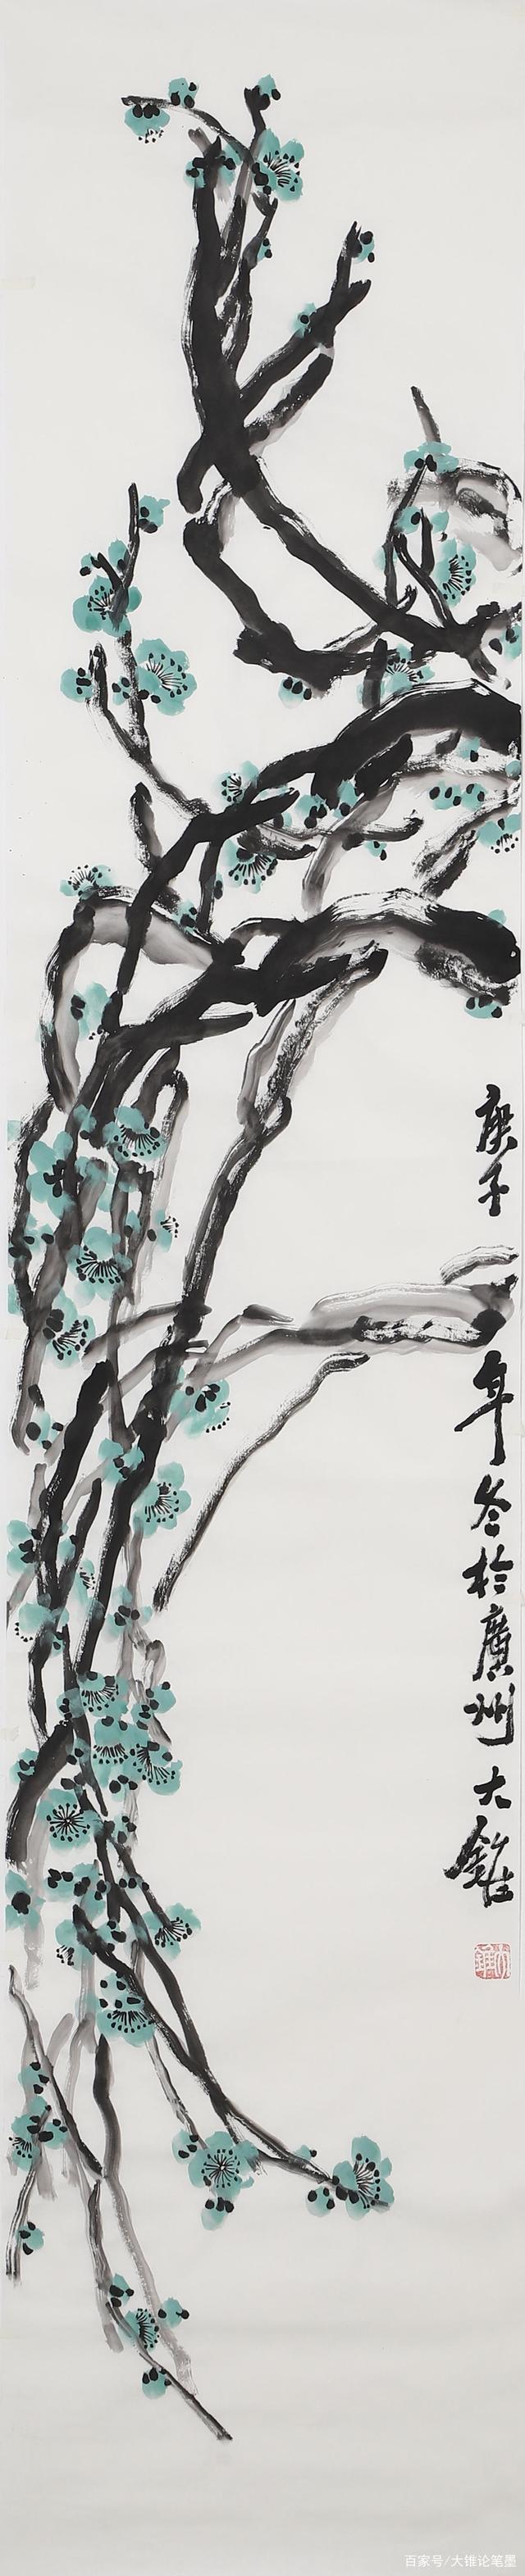 庚子年冬於廣州大錐
大錐
百家号/大锥论笔墨